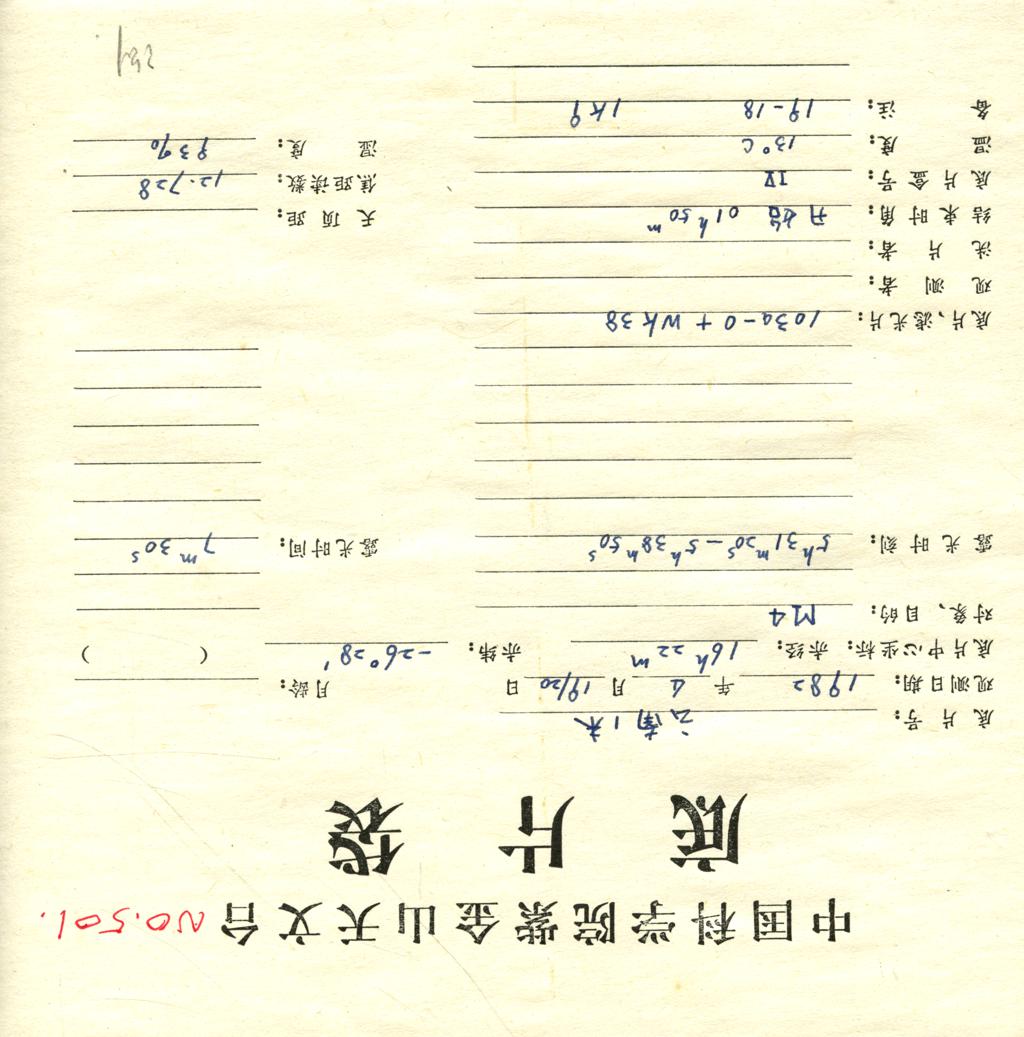 中国科学院紫金山天文台 NO.501.
底片袋
底片号: 云南1米
观测日期: 1982 年 4 月 19/20 日 月龄:
底片中心坐标: 赤经: 16h 22m 赤纬: -26°28′ ( )
对象、目的: M4
露光时刻: 5h31m20s-5h38m50s 露光时间: 7m30s
底片、滤光片: 103a-O + WK38
观测者:
洗片者:
结束时角: 开始 01h50m 天顶距:
底片盒号: IV 焦距读数: 12.728
温度: 13°C 湿度: 93%
备注: 19-18 1K9